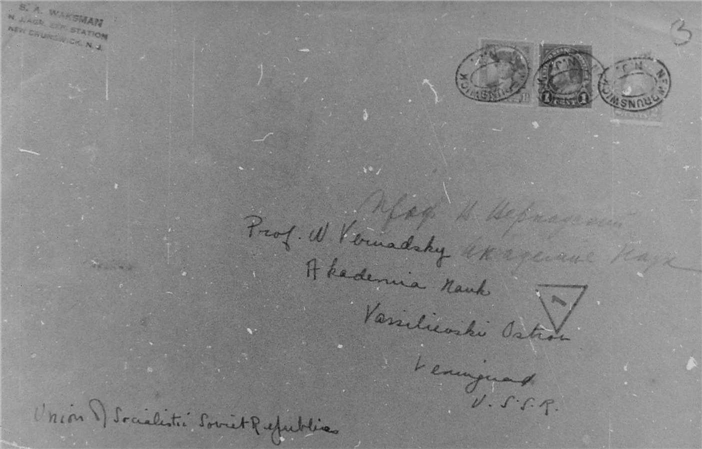 S. A. WAKSMAN
N. J. AGR. EXP. STATION
NEW BRUNSWICK, N. J.
3
NEW BRUNSWICK N.J.
1
NEW BRUNSWICK N.J.
Проф. В. Вернадский
Prof. W Vernadsky Академие Наук
Akademia Nauk
1
Vassilievski Ostrov
Leningrad
U.S.S.R.
Union of Socialistic Soviet Republics